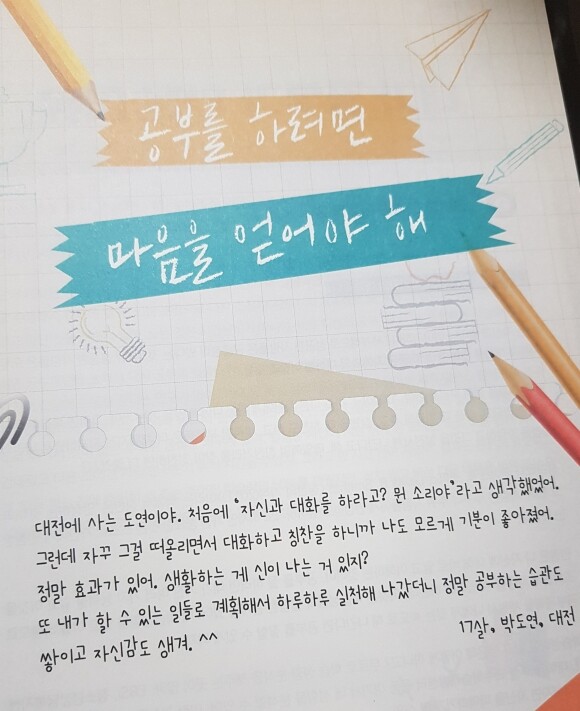 공부를 하려면
마음을 얻어야 해
대전에 사는 도연이야. 처음에 '자신과 대화를 하라고? 뭔 소리야'라고 생각했었어.
그런데 자꾸 그걸 떠올리면서 대화하고 칭찬을 하니까 나도 모르게 기분이 좋아졌어.
정말 효과가 있어. 생활하는 게 신이 나는 거 있지?
또 내가 할 수 있는 일들로 계획해서 하루하루 실천해 나갔더니 정말 공부하는 습관도
쌓이고 자신감도 생겨. ^^
17살, 박도연, 대전